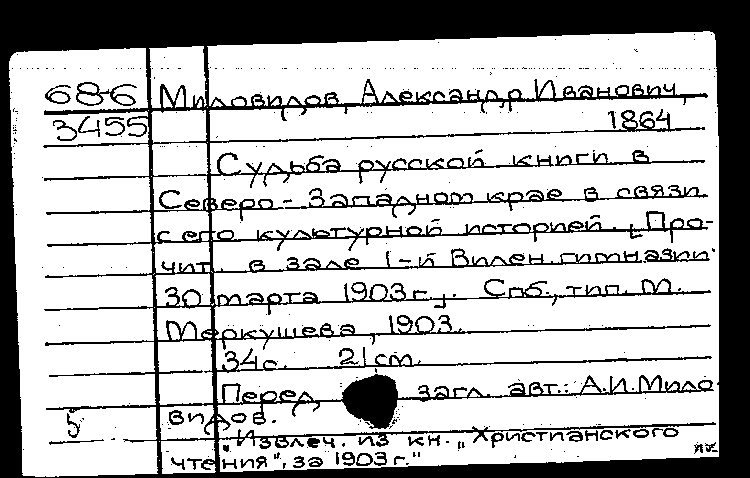 68-6 Миловидов, Александр Иванович,
3455 1864
Судьба русской книги в
Северо-Западном крае в связи
с его культурной историей. [Про-
чит. в зале I-й Вилен. гимназии
30 марта 1903 г.]. Спб., тип. М.
Меркушева, 1903.
34 с. 21 cm.
Перед загл. авт.: А.И. Мило-
5 видов.
"Извлеч. из кн. „Христианского
чтения", за 1903 г."